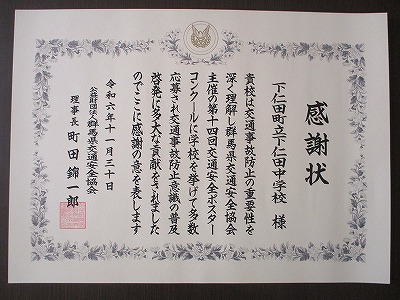 感謝状
下仁田町立下仁田中学校 様
貴校は交通事故防止の重要性を
深く理解し群馬県交通安全協会
主催の第十四回交通安全ポスター
コンクールに学校を挙げて多数
応募され交通事故防止意識の普及
啓発に多大な貢献をされました
のでここに感謝の意を表します
令和六年十一月三十日
公益財団法人群馬県交通安全協会
理事長 町田錦一郎